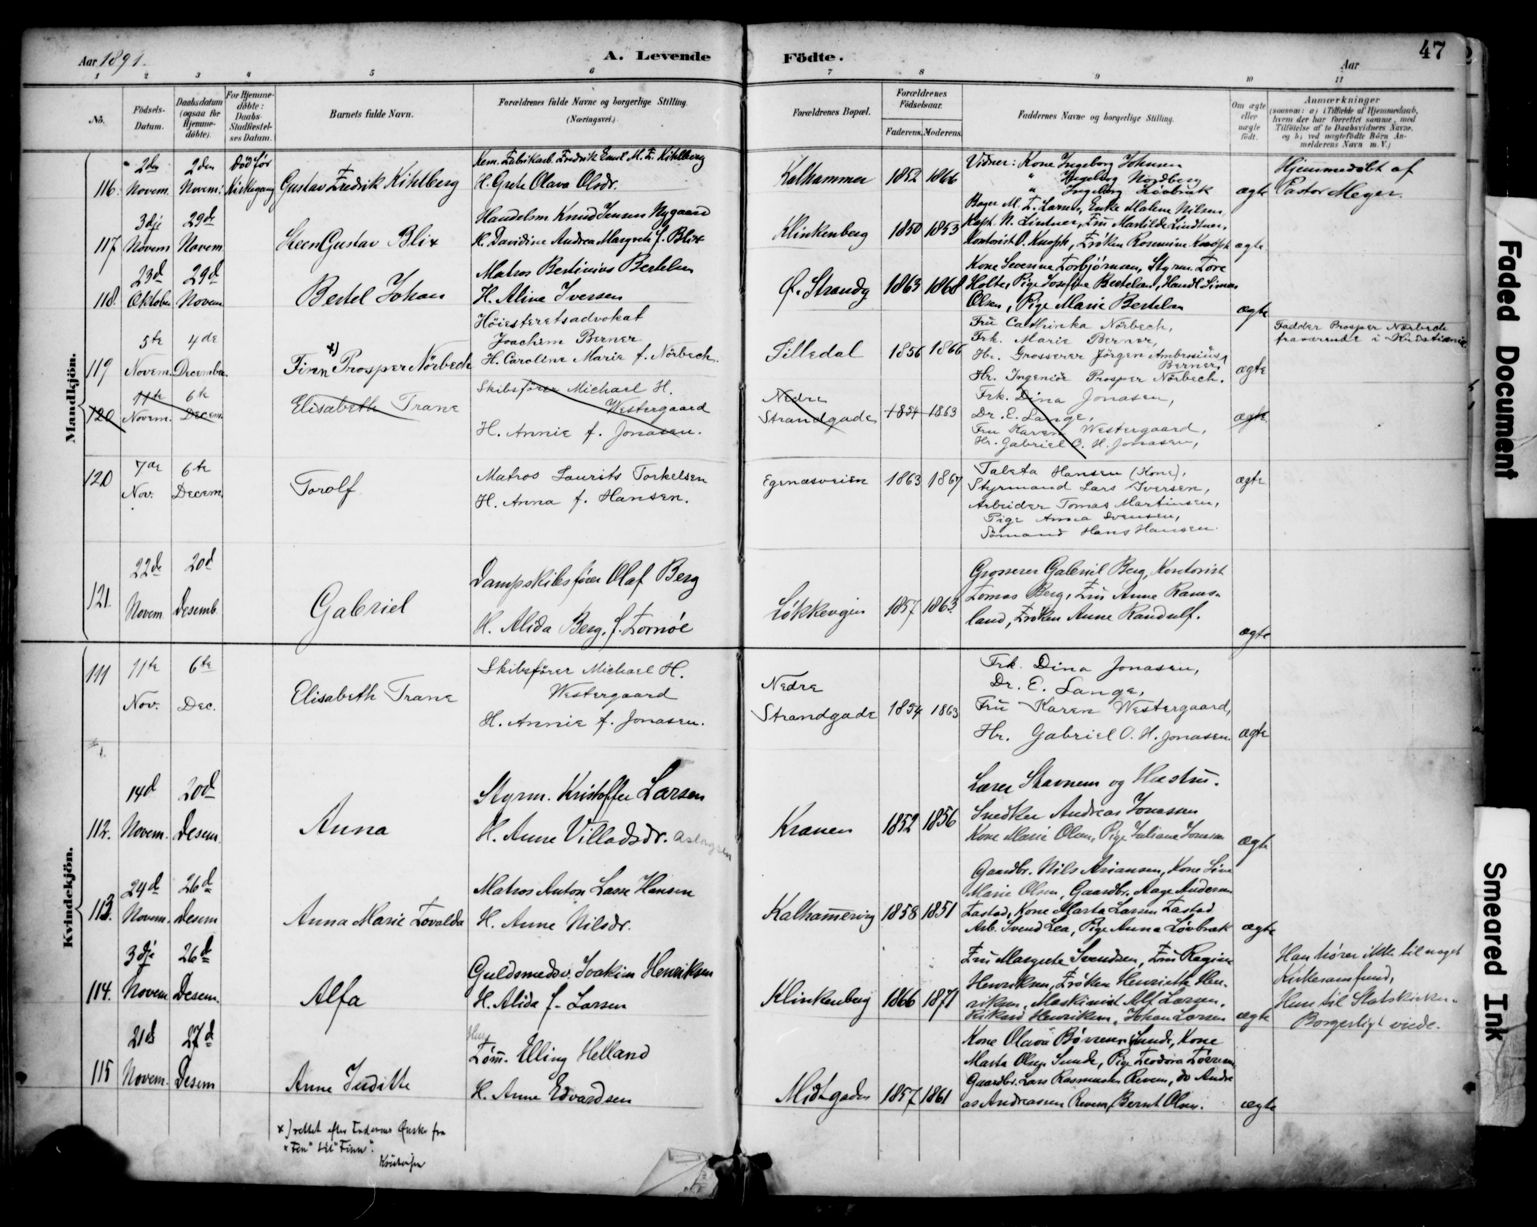 Aar 1891.
A. Levende Födte.
Aar
47
1 2 3 4 5 6 7 8 9 10 11
No.
Födsels-Datum.
Daabsdatum (ogsaa for Hjemme-döbte).
For Hjemme-döbte: Daabs-Stadfæstel-ses Datum.
Barnets fulde Navn.
Forældrenes fulde Navne og borgerlige Stilling. (Næringsvei.)
Forældrenes Bopæl.
Forældrenes Födselsaar.
Faderens.
Moderens.
Faddernes Navne og borgerlige Stilling.
Om ægte eller uægte födt.
Anmærkninger
Mandkjön.
116. 2den Novem. 2den Novem. Död før Kirkegang
Gustav Fredrik Kihlberg
Kem. Fabrikarb. Fredrik Emil M. F. Kihlberg
H. Grete Olava Olsdr.
Kalhammer 1852 1866
Vidner: Kone Ingeborg Johnsen
" Ingeborg Nordberg
" Ingeborg Løvbræk
ægte
Hjemmedöbt af
Pastor Meyer.
117 3dje Novem 29de Novem.
Steen Gustav Blix
Handelsm Knud Jensen Nygaard
H. Davidine Andrea Margrete f. Blix
Klinkenberg 1850 1853
Bager M. T. Larsen, Enke Malene Nilsen
Kapt. N. Lintner, Fru Mathilde Lindtner,
Kontorist O. Knoph, Frøken Rosemine Knoph
ægte
118. 23d Oktober 29d Novem.
Bertel Johan
Matros Bertinius Bertelsen
H. Alina Iversen
Ø. Strandg 1863 1868
Kone Severine Torbjørnsen, Styrm. Tore
Holte, Pige Josefine Bertelsen, Handl. Simon
Olsen, Pige Marie Bertelsen
ægte
119 5te Novem. 4de December.
x) Finn Prosper Nörbech
Höiesteretsadvokat
Joachim Berner
H. Caroline Marie f. Nörbech.
Tilledal 1856 1866
Fru Cathinka Nörbech,
Frk. Marie Berner,
Hr. Grosserer Jörgen Ambrosius Berner,
Hr. Ingeniör Prosper Nörbech.
ægte
Fadder Prosper Nørbech
fraværende i Kristiania
120 11te Novem. 6te Decem.
Elisabeth Trane
Skibsfører Michael H.
Westergaard
H. Annie f. Jonasen.
Nedre
Strandgade 1854 1863
Frk. Dina Jonasen,
Dr. E. Lange,
Fru Karen Westergaard,
Hr. Gabriel O. H. Jonasen,
ægte
120 7de Nov. 6te Decem.
Torolf
Matros Laurits Torkelsen
H. Anna f. Hansen.
Egenæsveien 1863 1867
Tabeta Hansen (Kone),
Styrmand Lars Iversen,
Arbeider Tomas Martinsen,
Pige Anna Svensen,
Sömand Hans Hansen.
ægte
121. 22de Novem 20d Desemb.
Gabriel
Dampskibsfører Olaf Berg
H. Alida Berg, f. Tornöe
Løkkevejen 1857 1863
Grosserer Gabriel Berg, Kontorist
Tomas Berg, Fru Anne Rams-
land, Frøken Anne Randulf.
ægte
Kvindekjön.
111 11te Nov. 6te Dec.
Elisabeth Trane
Skibsfører Michael H.
Westergaard
H. Annie f. Jonasen.
Nedre
Strandgade 1854 1863
Frk. Dina Jonasen,
Dr. E. Lange,
Fru Karen Westergaard,
Hr. Gabriel O. H. Jonasen.
ægte
112. 14d Novem. 20d Desem
Anna
Styrm. Kristoffer Larsen
H. Anne Villadsdr. Aslagsen
Kranen 1852 1856
Lærer Stavnem og Hustru.
Snedker Andreas Jonassen
Kone Marie Olsen, Pige Juliane Jonsen
ægte
113. 24d Novem. 26d Desem
Anna Marie Tovalda
Matros Anton Lasse Hansen
H. Anne Nilsdr.
Kalhammervig 1858 1851
Gaardbr. Nils Ariansen, Kone Sine
Marie Olsen, Gaardbr. Aage Andersen
Tastad, Kone Marta Larsen Tastad
Arb. Svend Lea, Pige Anna Løvbræk
ægte
114. 3dje Novem. 26d Desem.
Alfa
Guldsmedsv. Joakim Henriksen
H. Alida f. Larsen
Klinkenberg 1866 1871
Fru Margrete Svendsen, Fru Regine
Henriksen, Frøken Henriette Hen-
riksen, Maskinist Alf Larsen,
Rikard Henriksen, Johan Larsen
ægte
Han hører ikke til noget
Kirkesamfund,
Hun til Statskirken.
Borgerligt viede.
115 21d Novem. 27d Desem
Anne Juditte
Tøm. Elling Helland
H. Anne Edvardsen
Midtgaden 1857 1861
Kone Olava Børresen Sunde, Kone
Marta Olsen Sunde, Pige Teodora Tøresen
Gaardbr. Lars Rasmussen Reven, do Andre
as Andreassen Reven, Bernt Olsen.
ægte
x) rettet efter Faderens Ønske fra
"Fin" til "Finn".
Faded Document
Smeared Ink